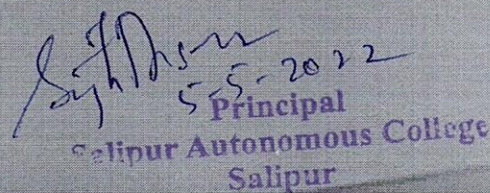 5-5-2022
Principal
Salipur Autonomous College
Salipur